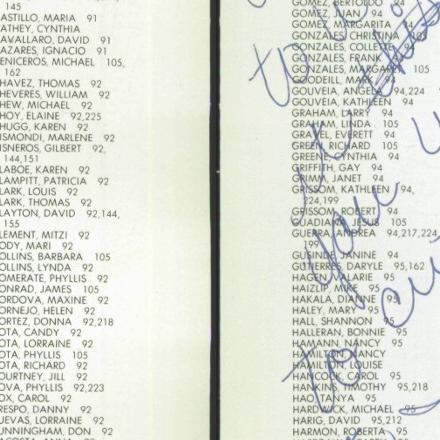 145
ASTILLO, MARIA 91
ATHEY, CYNTHIA
AVALLARO, DAVID 91
AZARES, IGNACIO 91
ENICEROS, MICHAEL 105,
162
HAVEZ, THOMAS 92
HEVERES, WILLIAM 92
HEW, MICHAEL 92
HOY, ELAINE 92,225
HUGG, KAREN 92
ISMONDI, MARLENE 92
ISNEROS, GILBERT 92,
144,151
LABOE, KAREN 92
LAMPITT, PATRICIA 92
LARK, LOUIS 92
LARK, THOMAS 92
LAYTON, DAVID 92,144,
155
LEMENT, MITZI 92
ODY, MARI 92
OLLINS, BARBARA 105
OLLINS, LYNDA 92
OMERATE, PHYLLIS 92
ONRAD, JAMES 105
ORDOVA, MAXINE 92
ORNEJO, HELEN 92
ORTEZ, DONNA 92,218
OTA, CANDY 92
OTA, LORRAINE 92
OTA, PHYLLIS 105
OTA, RICHARD 92
OURTNEY, JILL 92
OVA, PHYLLIS 92,223
OX, CAROL 92
RESPO, DANNY 92
UEVAS, LORRAINE 92
UNNINGHAM, DON 92
GOMEZ, BERTOLDO 94
GOMEZ, JUAN 94
GOMEZ, MARGARITA 94
GONZALES, CHRISTINA 105
GONZALES, COLLETTE 94
GONZALES, FRANK
GONZALES, MARGARET 105
GOODEILL, MARK 94
GOUVEIA, ANGELA 94,224
GOUVEIA, KATHLEEN 94
GRAHAM, LARRY 94
GRAHAM, LINDA 105
GRAVEL, EVERETT 94
GREEN, RICHARD 105
GREENE, CYNTHIA 94
GRIFFITH, GAY 94
GRIMM, JANET 94
GRISSOM, KATHLEEN 94,
224,199
GRISSOM, ROBERT 94
GUADIANA, JESUS 105
GUERRA, ANDREA 94,217,224,
199
GUSINDE, JANINE 94
GUTIERRES, DARYLE 95,162
HAGEN, VALARIE 95
HAIZLIP, MIKE 95
HAKALA, DIANNE 95
HALEY, MARY 95
HALL, SHANNON 95
HALLERAN, BONNIE 95
HAMANN, NANCY 95
HAMILTON, NANCY
HAMILTON, LOUISE
HANCOCK, CAROL 95
HANKINS, TIMOTHY 95,218
HAO, TANYA 95
HARDWICK, MICHAEL 95
HARIG, DAVID 95,212
HARMON, ROBERTA 95
to
you
to